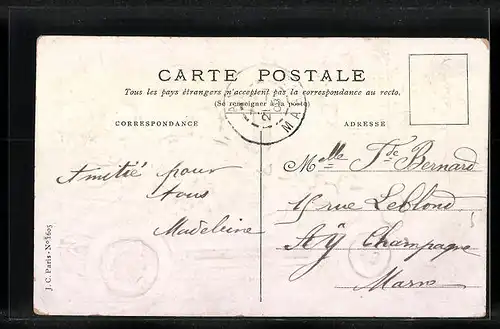 CARTE POSTALE
Tous les pays étrangers n'acceptent pas la correspondance au recto.
(Se renseigner à la poste)
CORRESPONDANCE
ADRESSE
MA
Amitié pour
tous
Madeleine
Melle de Bernard
15 rue Leblond
Aÿ Champagne
Marne
J. C. Paris - No 1605